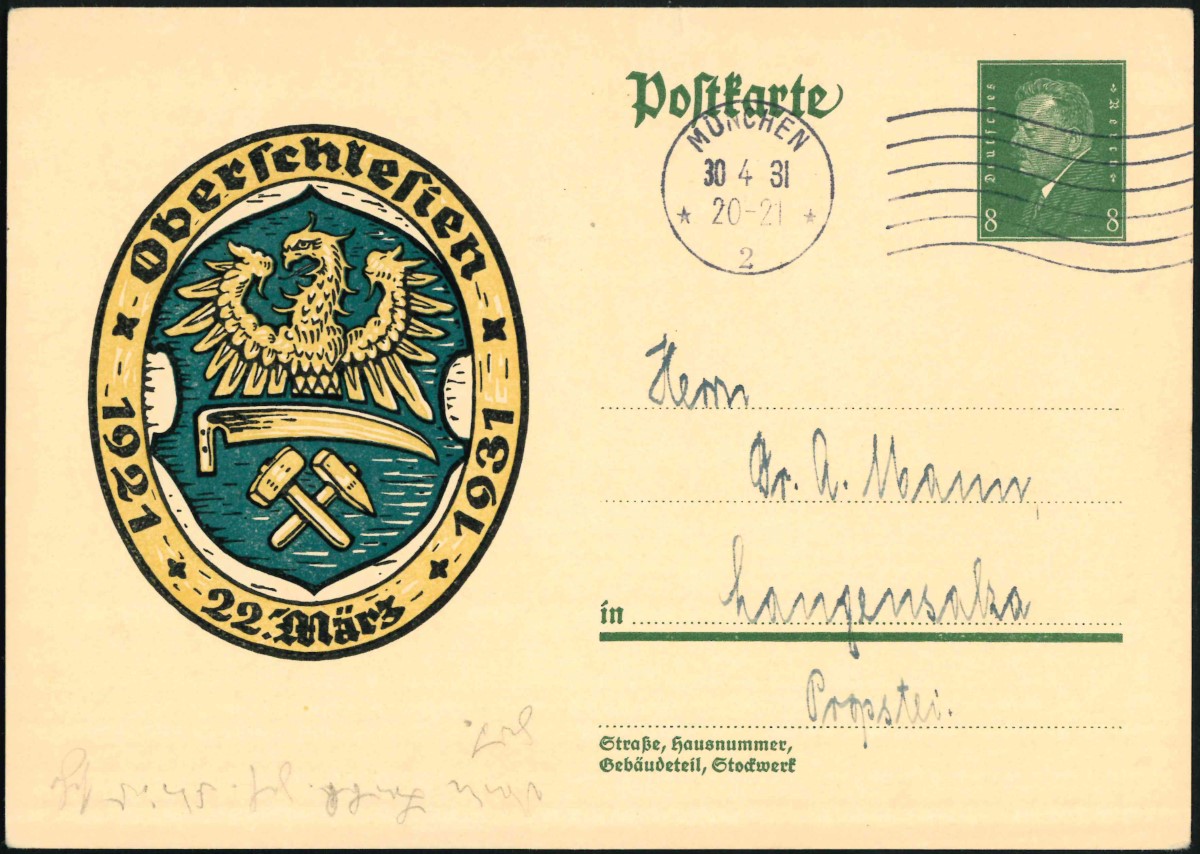 Oberschlesien
1921
1931
22. März
Postkarte
MÜNCHEN
30 4 31
20-21
2
Deutsches
Reich
8 8
Herrn
Dr. A. Mann,
in Langensalza
Propstei.
Straße, Hausnummer,
Gebäudeteil, Stockwerk